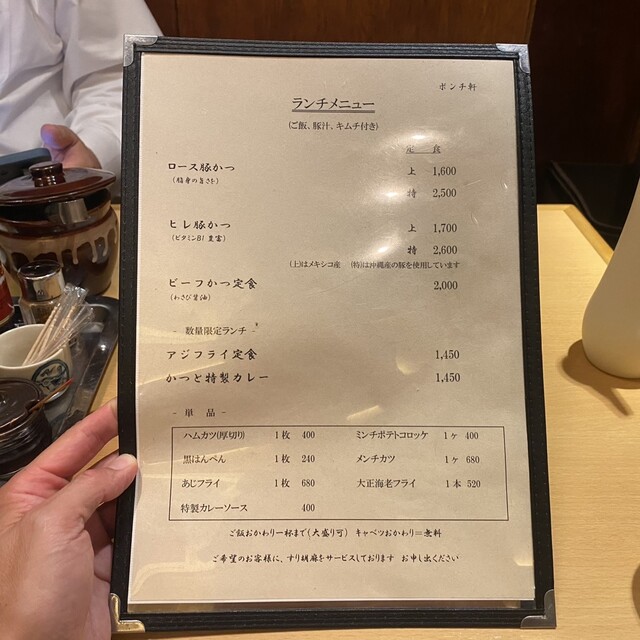 ポンチ軒
ランチメニュー
(ご飯、豚汁、キムチ付き)
定 食
ロース豚かつ 上 1,600
(脂身の旨さを) 特 2,500
ヒレ豚かつ 上 1,700
(ビタミンB1 豊富) 特 2,600
(上)はメキシコ産 (特)は沖縄産の豚を使用しています
ビーフかつ定食 2,000
(わさび醤油)
- 数量限定ランチ -
アジフライ定食 1,450
かつと特製カレー 1,450
- 単 品 -
ハムカツ(厚切り) 1枚 400 ミンチポテトコロッケ 1ヶ 400
黒はんぺん 1枚 240 メンチカツ 1ヶ 680
あじフライ 1枚 680 大正海老フライ 1本 520
特製カレーソース 400
ご飯おかわり一杯まで(大盛り可) キャベツおかわり=無料
ご希望のお客様に、すり胡麻をサービスしております お申し出ください